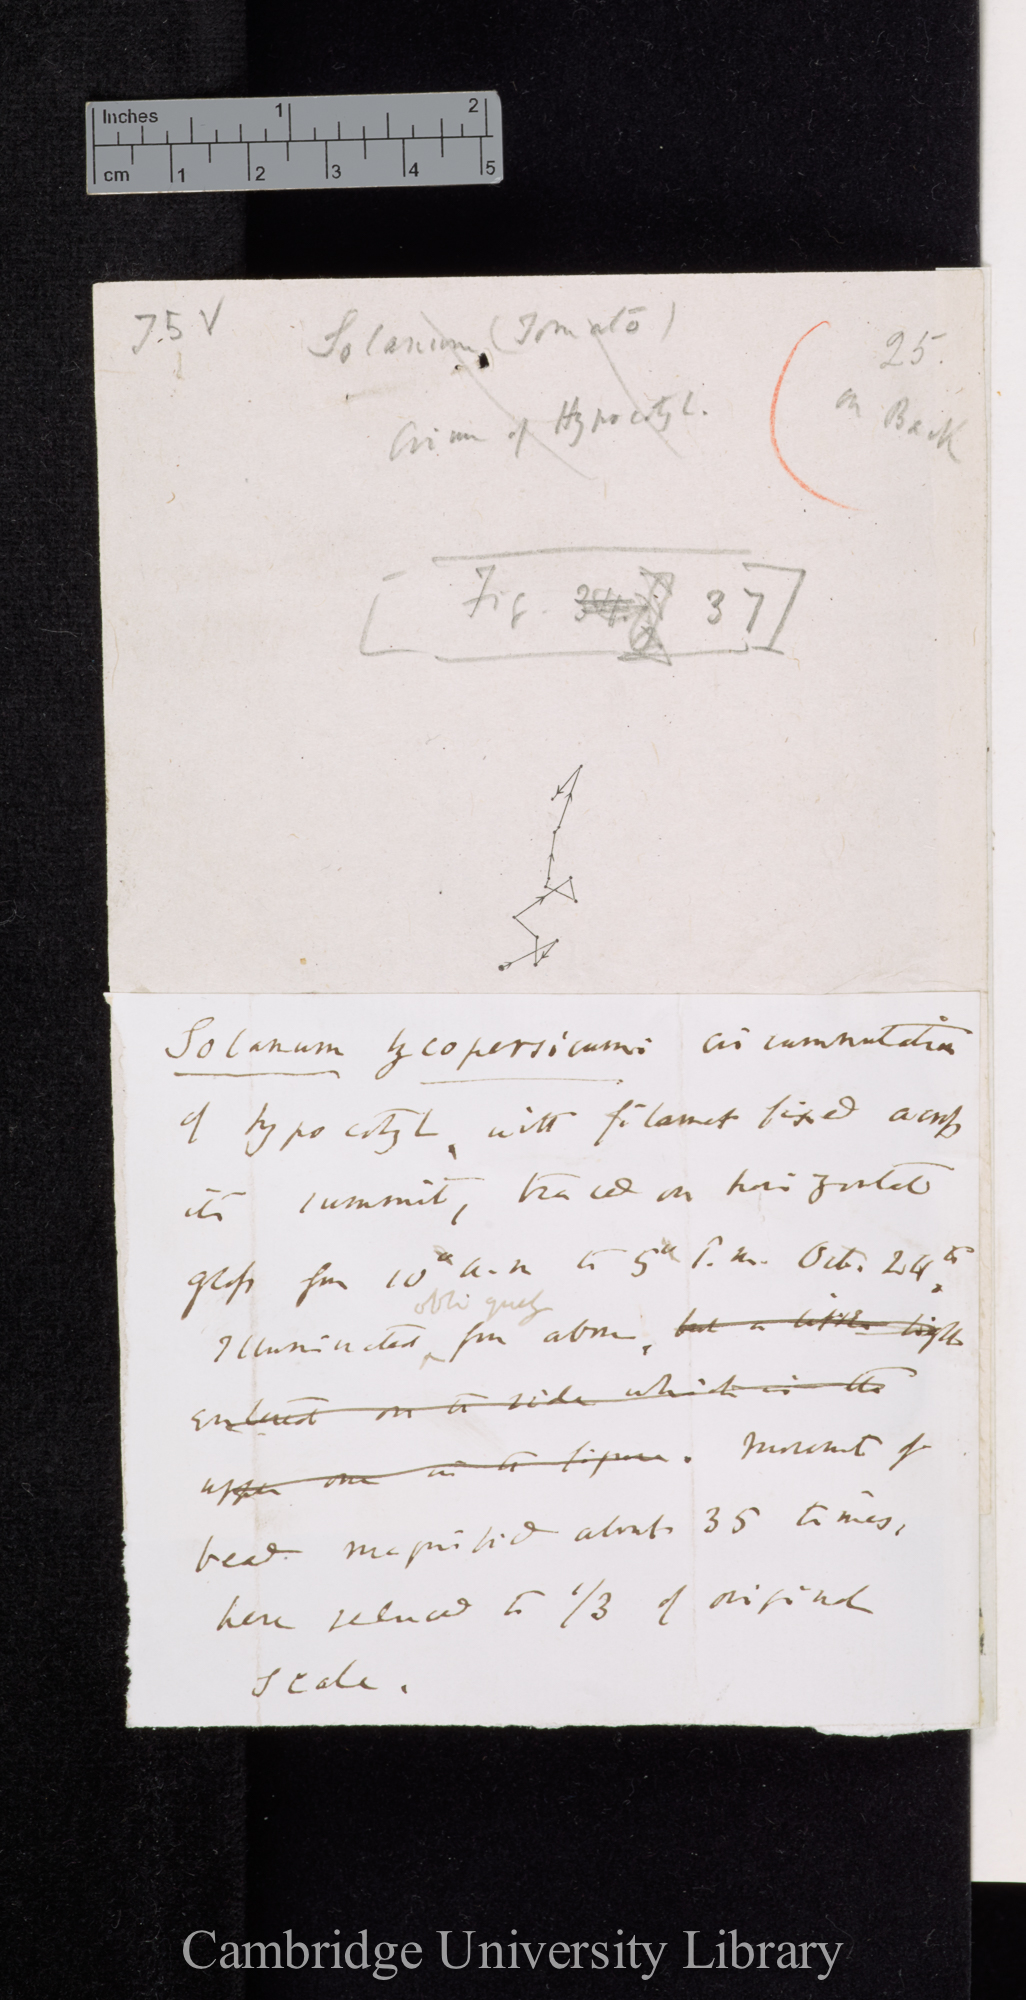 Inches 1 2
cm 1 2 3 4 5
7.5 V
Solanum (Tomato)
25.
on Back
Circum of Hypocotyl.
Fig. 34. 37
Solanum lycopersicum: circumnutation
of hypocotyl, with filament fixed across
its summit, traced on horizontal
glass from 10° a.m to 5° P.m. Oct. 24th.
obliquely
Illuminated from above, but a little light
entered on the side which is the
upper one in the figure. Movement of
bead magnified about 35 times,
here reduced to 1/3 of original
scale.
Cambridge University Library